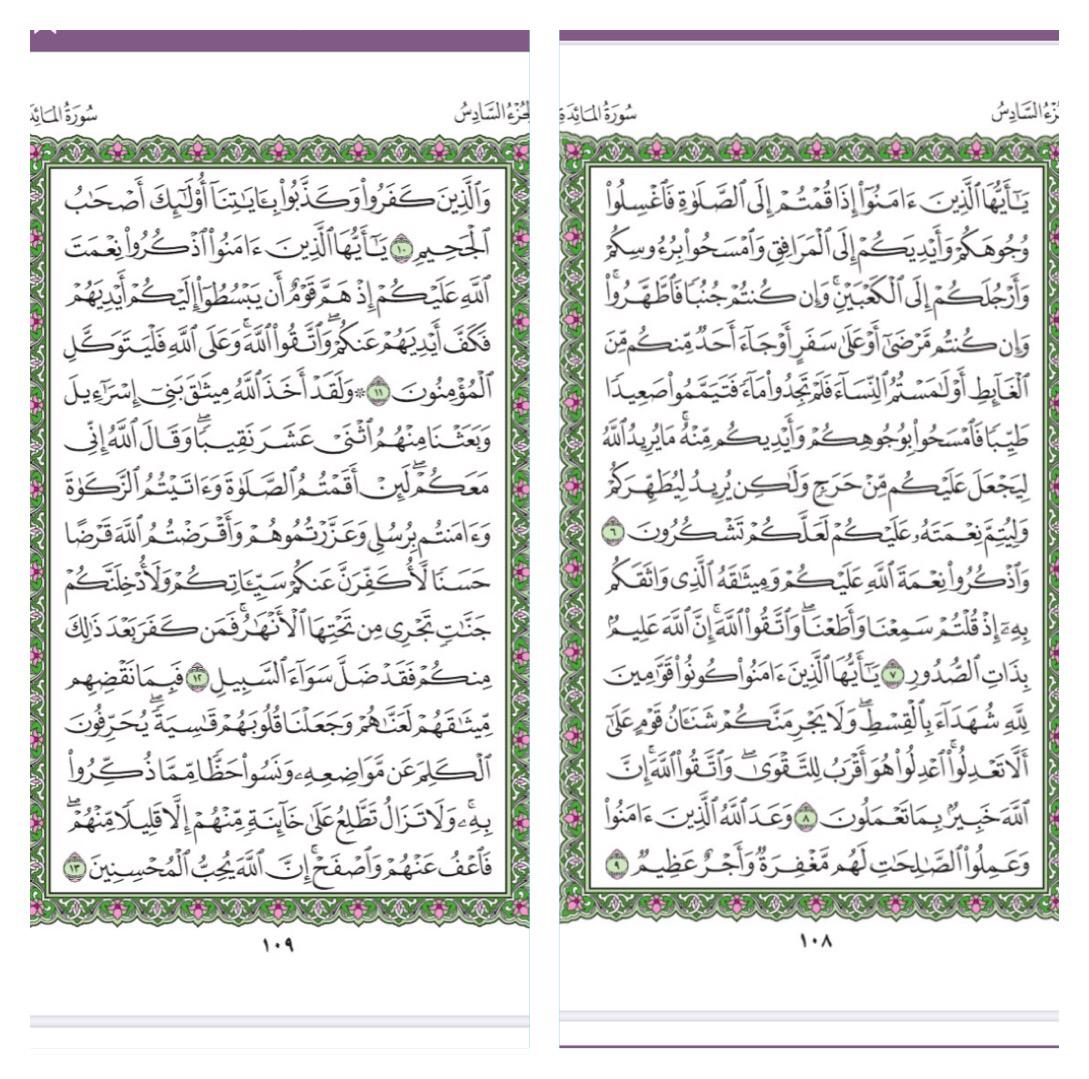 الجزء السادس
سورة المائدة
يَـٰٓأَيُّهَا ٱلَّذِينَ ءَامَنُوٓا۟ إِذَا قُمْتُمْ إِلَى ٱلصَّلَوٰةِ فَٱغْسِلُوا۟
وُجُوهَكُمْ وَأَيْدِيَكُمْ إِلَى ٱلْمَرَافِقِ وَٱمْسَحُوا۟ بِرُءُوسِكُمْ
وَأَرْجُلَكُمْ إِلَى ٱلْكَعْبَيْنِ ۚ وَإِن كُنتُمْ جُنُبًا فَٱطَّهَّرُوا۟ ۚ
وَإِن كُنتُم مَّرْضَىٰٓ أَوْ عَلَىٰ سَفَرٍ أَوْ جَآءَ أَحَدٌ مِّنكُم مِّنَ
ٱلْغَآئِطِ أَوْ لَـٰمَسْتُمُ ٱلنِّسَآءَ فَلَمْ تَجِدُوا۟ مَآءً فَتَيَمَّمُوا۟ صَعِيدًا
طَيِّبًا فَٱمْسَحُوا۟ بِوُجُوهِكُمْ وَأَيْدِيكُم مِّنْهُ ۚ مَا يُرِيدُ ٱللَّهُ
لِيَجْعَلَ عَلَيْكُم مِّنْ حَرَجٍ وَلَـٰكِن يُرِيدُ لِيُطَهِّرَكُمْ
وَلِيُتِمَّ نِعْمَتَهُۥ عَلَيْكُمْ لَعَلَّكُمْ تَشْكُرُونَ ٦
وَٱذْكُرُوا۟ نِعْمَةَ ٱللَّهِ عَلَيْكُمْ وَمِيثَـٰقَهُ ٱلَّذِى وَاثَقَكُم
بِهِۦٓ إِذْ قُلْتُمْ سَمِعْنَا وَأَطَعْنَا ۖ وَٱتَّقُوا۟ ٱللَّهَ ۚ إِنَّ ٱللَّهَ عَلِيمٌۢ
بِذَاتِ ٱلصُّدُورِ ٧ يَـٰٓأَيُّهَا ٱلَّذِينَ ءَامَنُوا۟ كُونُوا۟ قَوَّٰمِينَ
لِلَّهِ شُهَدَآءَ بِٱلْقِسْطِ ۖ وَلَا يَجْرِمَنَّكُمْ شَنَـَٔانُ قَوْمٍ عَلَىٰٓ
أَلَّا تَعْدِلُوا۟ ۚ ٱعْدِلُوا۟ هُوَ أَقْرَبُ لِلتَّقْوَىٰ ۖ وَٱتَّقُوا۟ ٱللَّهَ ۚ إِنَّ
ٱللَّهَ خَبِيرٌۢ بِمَا تَعْمَلُونَ ٨ وَعَدَ ٱللَّهُ ٱلَّذِينَ ءَامَنُوا۟
وَعَمِلُوا۟ ٱلصَّـٰلِحَـٰتِ ۙ لَهُم مَّغْفِرَةٌ وَأَجْرٌ عَظِيمٌ ٩
١٠٨
الجزء السادس
سورة المائدة
وَٱلَّذِينَ كَفَرُوا۟ وَكَذَّبُوا۟ بِـَٔايَـٰتِنَآ أُو۟لَـٰٓئِكَ أَصْحَـٰبُ
ٱلْجَحِيمِ ١٠ يَـٰٓأَيُّهَا ٱلَّذِينَ ءَامَنُوا۟ ٱذْكُرُوا۟ نِعْمَتَ
ٱللَّهِ عَلَيْكُمْ إِذْ هَمَّ قَوْمٌ أَن يَبْسُطُوٓا۟ إِلَيْكُمْ أَيْدِيَهُمْ
فَكَفَّ أَيْدِيَهُمْ عَنكُمْ ۖ وَٱتَّقُوا۟ ٱللَّهَ ۚ وَعَلَى ٱللَّهِ فَلْيَتَوَكَّلِ
ٱلْمُؤْمِنُونَ ١١ ۞ وَلَقَدْ أَخَذَ ٱللَّهُ مِيثَـٰقَ بَنِىٓ إِسْرَٰٓءِيلَ
وَبَعَثْنَا مِنْهُمُ ٱثْنَىْ عَشَرَ نَقِيبًا ۖ وَقَالَ ٱللَّهُ إِنِّى
مَعَكُمْ ۖ لَئِنْ أَقَمْتُمُ ٱلصَّلَوٰةَ وَءَاتَيْتُمُ ٱلزَّكَوٰةَ
وَءَامَنتُم بِرُسُلِى وَعَزَّرْتُمُوهُمْ وَأَقْرَضْتُمُ ٱللَّهَ قَرْضًا
حَسَنًا لَّأُكَفِّرَنَّ عَنكُمْ سَيِّـَٔاتِكُمْ وَلَأُدْخِلَنَّكُمْ
جَنَّـٰتٍ تَجْرِى مِن تَحْتِهَا ٱلْأَنْهَـٰرُ ۚ فَمَن كَفَرَ بَعْدَ ذَٰلِكَ
مِنكُمْ فَقَدْ ضَلَّ سَوَآءَ ٱلسَّبِيلِ ١٢ فَبِمَا نَقْضِهِم
مِّيثَـٰقَهُمْ لَعَنَّـٰهُمْ وَجَعَلْنَا قُلُوبَهُمْ قَـٰسِيَةً ۖ يُحَرِّفُونَ
ٱلْكَلِمَ عَن مَّوَاضِعِهِۦ ۙ وَنَسُوا۟ حَظًّا مِّمَّا ذُكِّرُوا۟
بِهِۦ ۚ وَلَا تَزَالُ تَطَّلِعُ عَلَىٰ خَآئِنَةٍ مِّنْهُمْ إِلَّا قَلِيلًا مِّنْهُمْ ۖ
فَٱعْفُ عَنْهُمْ وَٱصْفَحْ ۚ إِنَّ ٱللَّهَ يُحِبُّ ٱلْمُحْسِنِينَ ١٣
١٠٩